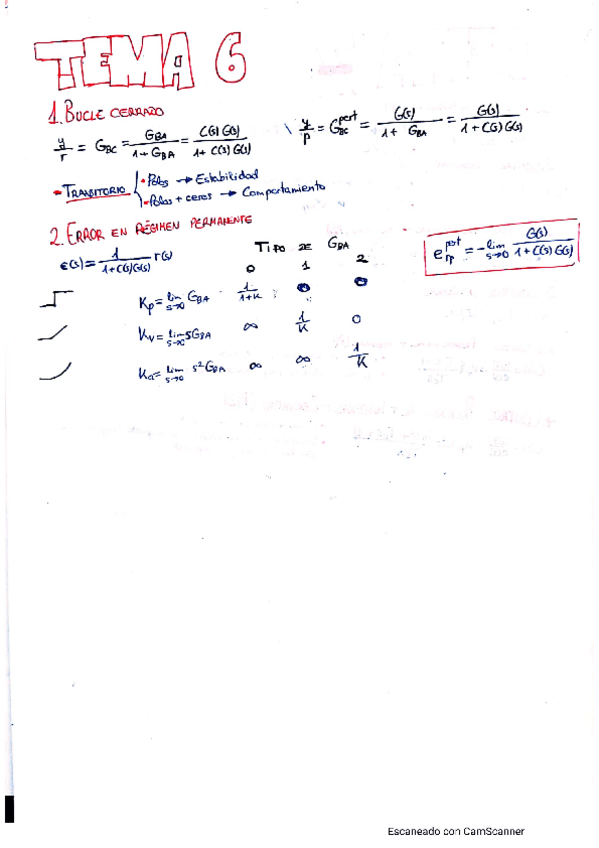 TEMA 6
1. BUCLE CERRADO
y/r = G_BC = G_BA / (1 + G_BA) = C(s) G(s) / (1 + C(s) G(s))
y/p = G_BC^pert = G(s) / (1 + G_BA) = G(s) / (1 + C(s) G(s))
- TRANSITORIO
• Polos → Estabilidad
- Polos + ceros → Comportamiento
2. ERROR EN RÉGIMEN PERMANENTE
e(s) = 1 / (1 + C(s) G(s)) r(s)
TIPO DE G_BA
0 1 2
e_rp^pert = - lim s→0 G(s) / (1 + C(s) G(s))
Kp = lim s→0 G_BA 1/(1+K) 0 0
Kv = lim s→0 s G_BA ∞ 1/K 0
Ka = lim s→0 s² G_BA ∞ ∞ 1/K
Escaneado con CamScanner